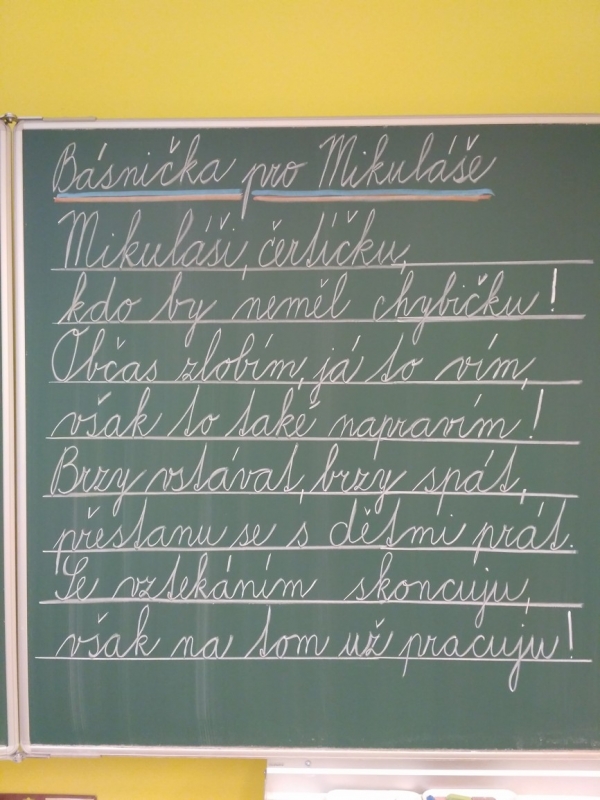 Básnička pro Mikuláše
Mikuláši, čertíčku,
kdo by neměl chybičku!
Občas zlobím, já to vím,
však to také napravím!
Brzy vstávat, brzy spát,
přestanu se s dětmi prát.
Se vztekáním skoncuju,
však na tom už pracuju!